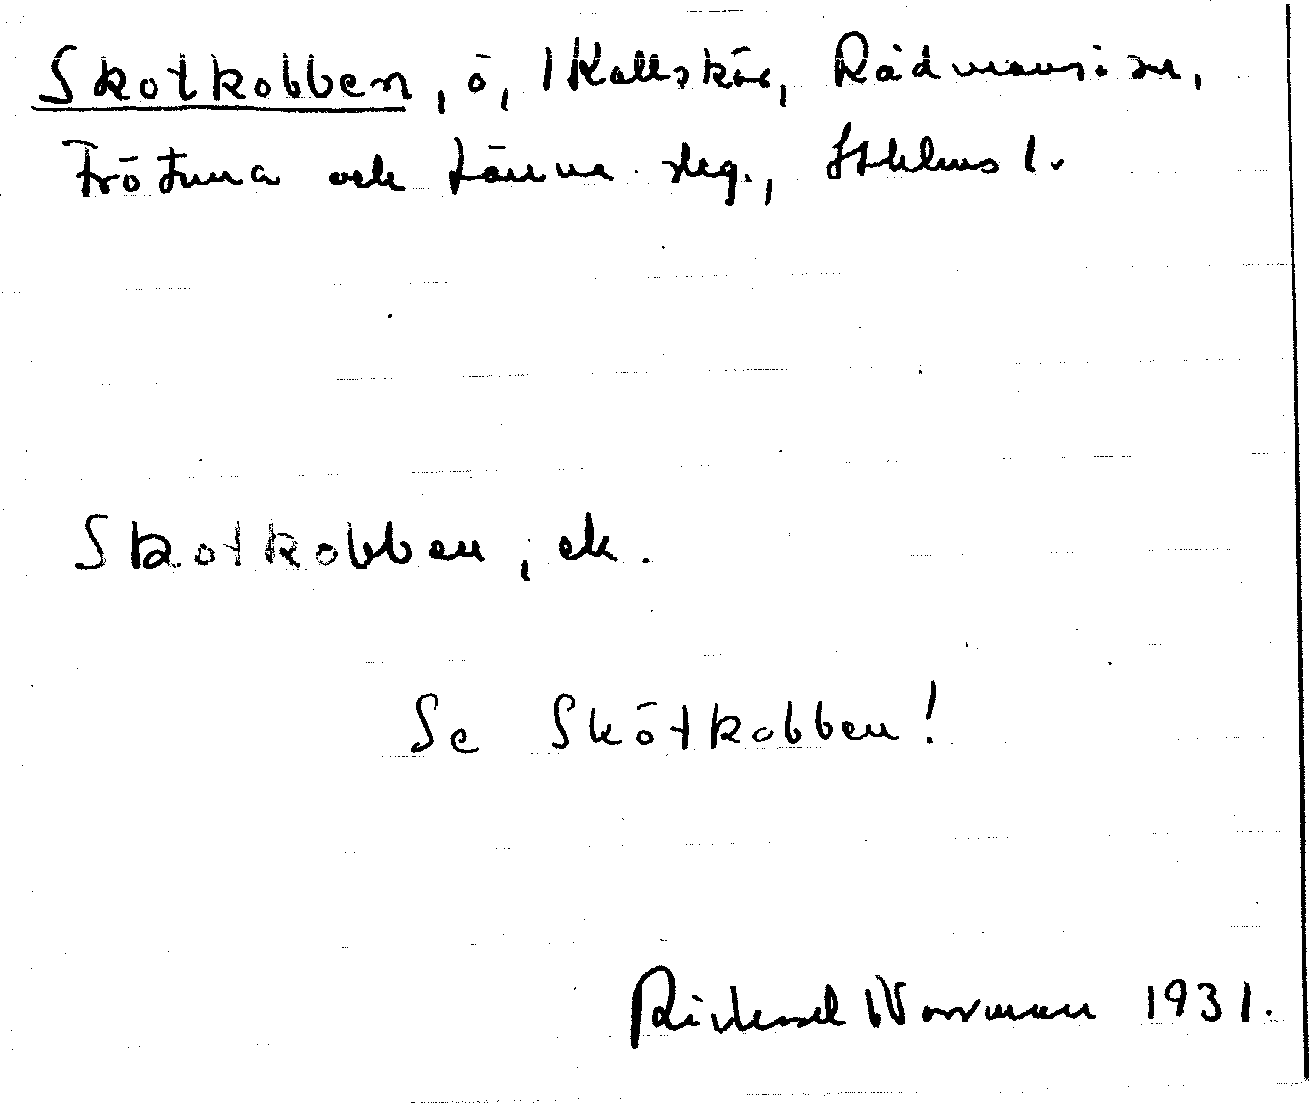 Skotkobben, ö, Kallskär, Rådmansö sn,
Frötuna och Länna skg., Sthlms l.
Skotkobben, ek.
Se Skötkobben!
Rickard Norrman 1931.